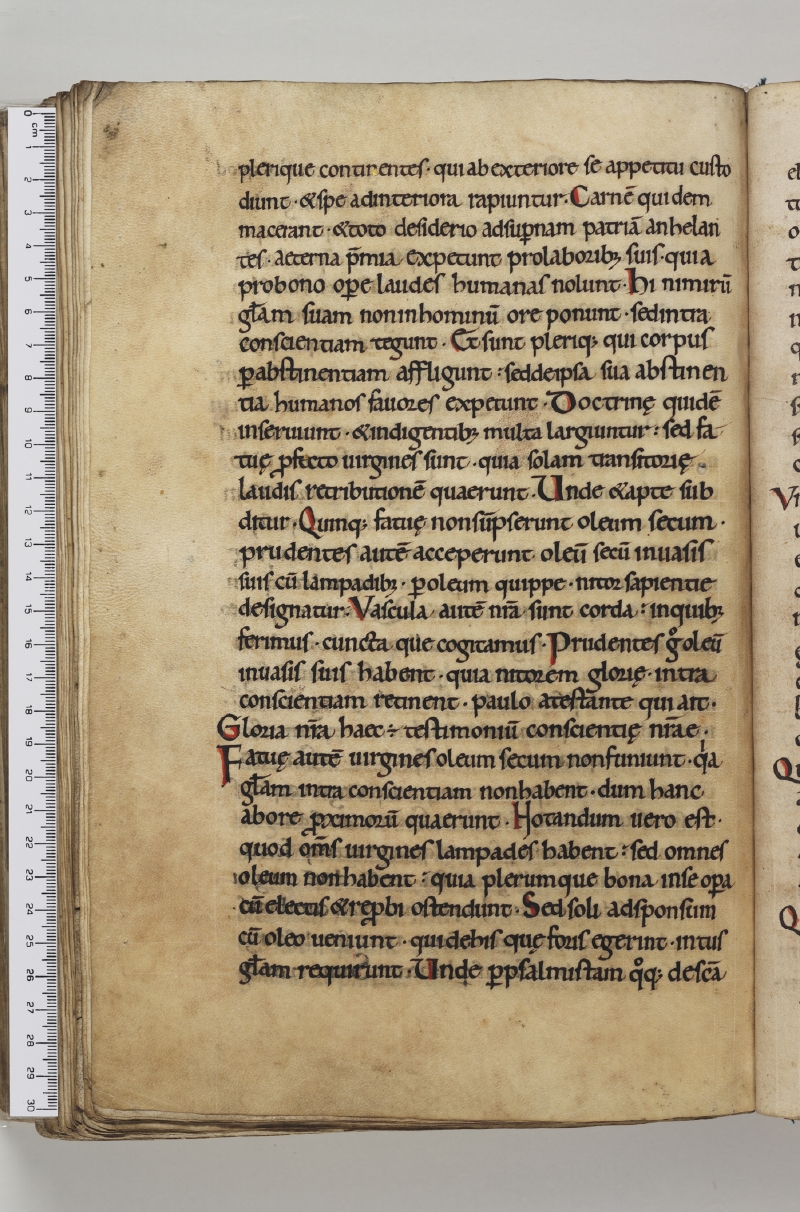 plerique continentes· qui ab exteriore se appetitu custo
diunt· & spe ad interiora rapiuntur· Carnē quidem
macerant· & toto desiderio ad sup̄nam patriā anhelan
tes· aeterna p̄mia expetunt pro laborib; suis· quia
pro bono oꝑe laudes humanas nolunt· Hi nimirū
gl̄am suam non in hominū ore ponunt· sed intra
conscientiam tegunt· Et sunt pleriq; qui corpus
ꝑ abstinentiam affligunt: sed de ipsa sua abstinen
tia humanos fauores expetunt· Doctrinę quidē
inseruiunt· & indigentib; multa largiuntur: sed fa
tuę ꝓfecto uirgines sunt· quia solam transitorię
laudis retributionē quaerunt· Unde & apte sub
ditur· Quinq; fatuę non sūpserunt oleum secum·
prudentes autē acceperunt oleū secū in uasis
suis cū lampadib;· ꝑ oleum quippe· nitor sapientie
designatur· Vascula autē nr̄a sunt corda: in quib;
ferimus· cuncta que cogitamus· Prudentes gͦ oleū
in uasis suis habent· quia nitorem glorię· intra
conscientiam retinent· paulo atestante qui ait·
Gloria nr̄a haec ÷ testimoniū conscientię nr̄ae·
Fatuę autē uirgines oleum secum non sumunt· qͥa
gl̄am intra conscientiam non habent· dum hanc
abore ꝓximorū quaerunt· Notandum uero est·
quod om̄s uirgines lampades habent: sed omnes
oleum non habent: quia plerumque bona in se oꝑa
cū electis & reꝓbi ostendunt· Sed soli ad sponsum
cū oleo ueniunt· qui de his que foris egerint· intus
gl̄am requirunt· Unde ꝑ psalmistam qͦq; de scā